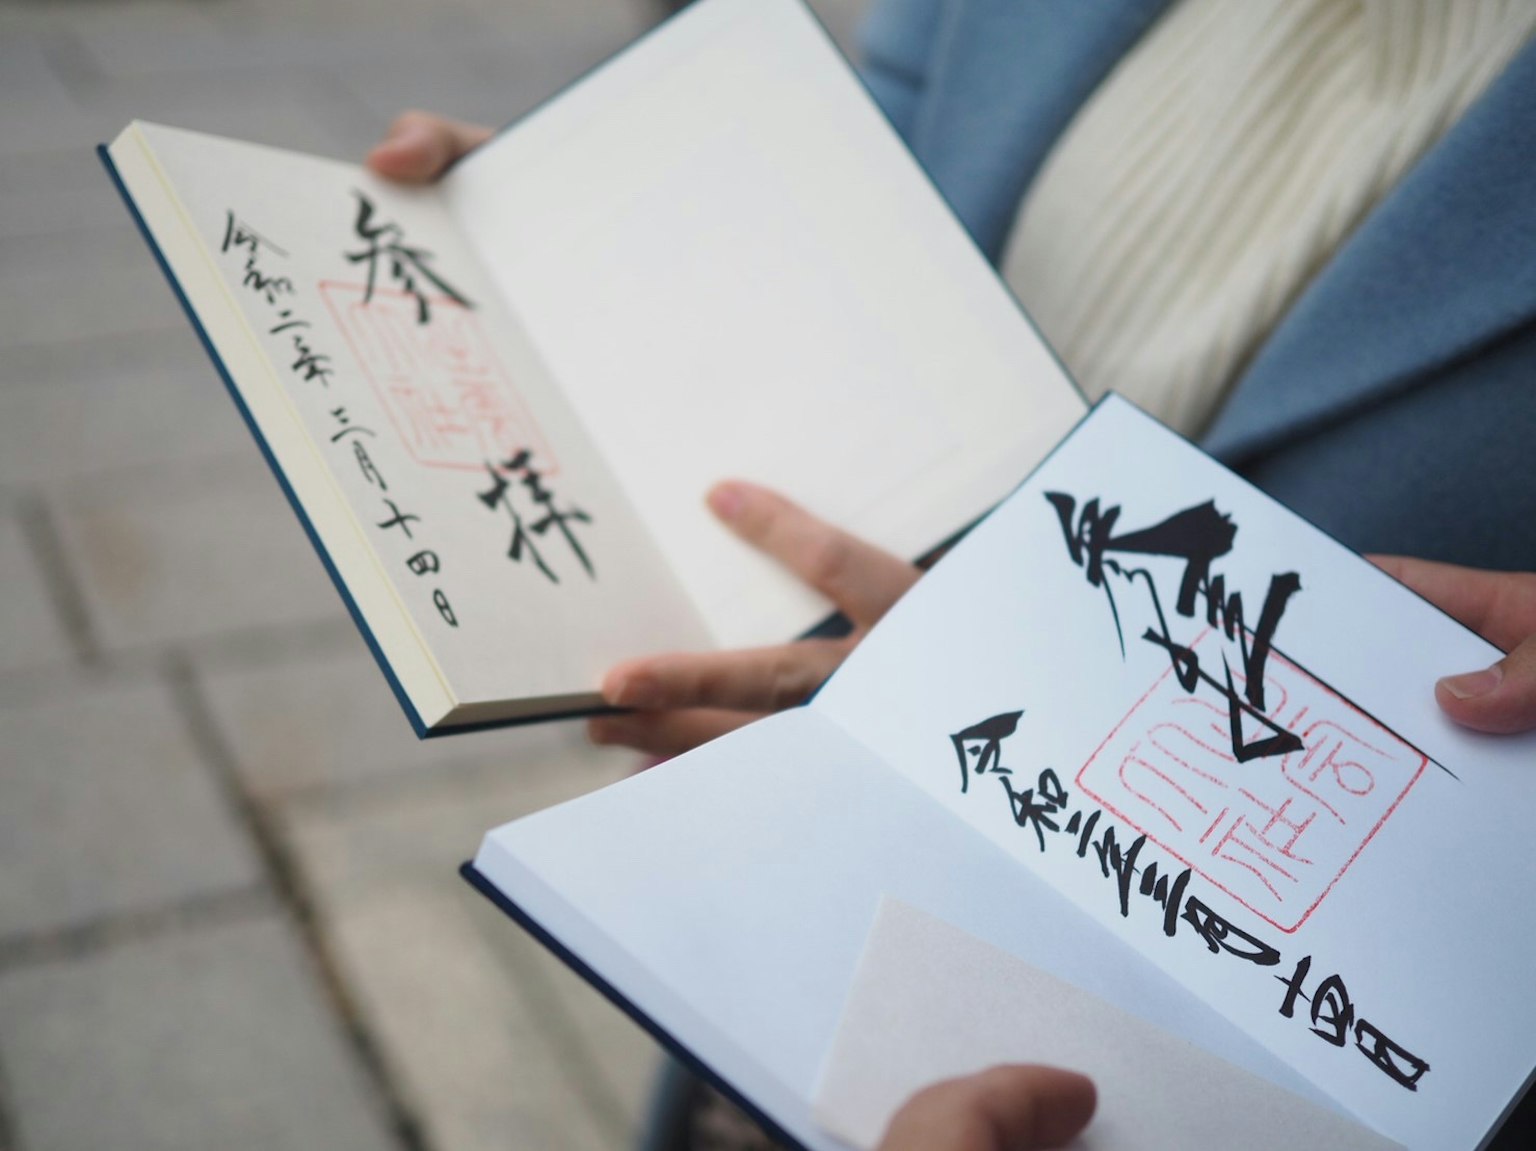 参拝
令和二年三月十四日
参拝
令和二年三月十四日